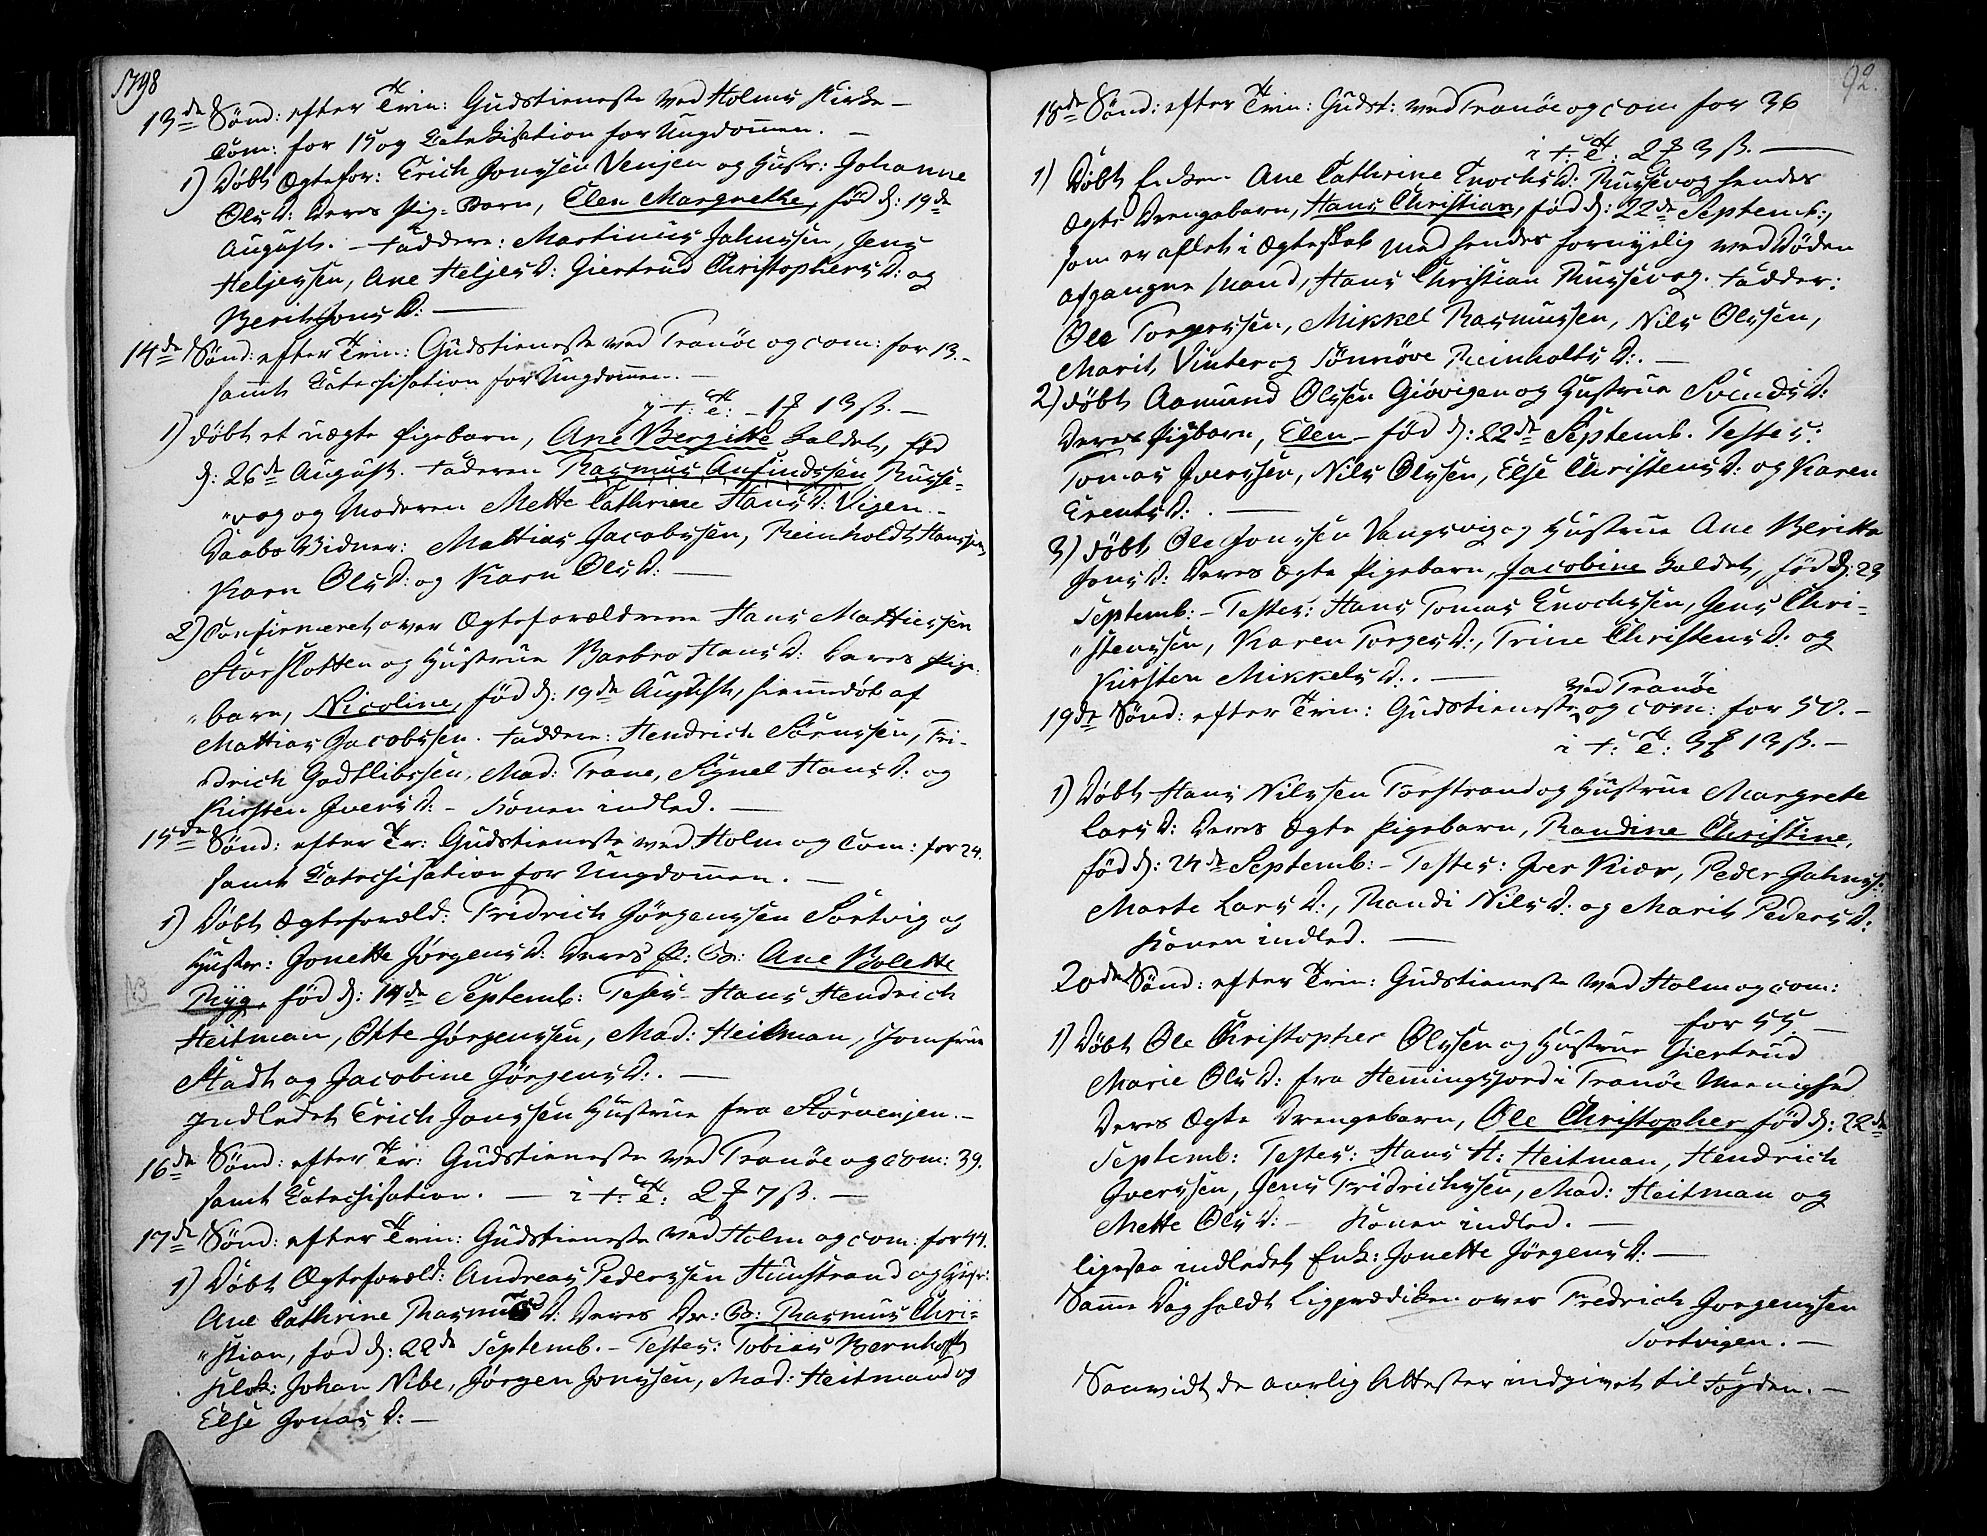 1798
13de Sønd: efter Trin: Gudstieneste ved Holms Kirke –
Com: for 15 og Catekisation for Ungdommen. –
1) Døbt Ægtefor: Erich Jonssen Venjen og Hustr: Johanne
Ols D: deres Pig-Barn, Elen Margrethe, fød d: 19de
August. – Faddere: Martinus Jahnssen, Jens
Heljessen, Ane Heljes D: Giertrud Christophers D: og
Berit Jons D: –
14de Sønd: efter Trin: Gudstieneste ved Tranöe og com: for 13. –
samt Catechisation for Ungdommen. –
1) døbt et uægte Pigebarn, Ane Bergitte kaldet, fød
d: 26de August. Faderen Rasmus Anfindssen Russe-
"vog og Moderen Mette Cathrine Hans D: Vigen –
Daabs Vidner: Mattias Jacobssen, Reinholdt Hanssen,
Karn Ols D: og Karn Ols D: –
2) Confirmeret over Ægteforældrene Hans Mattiessen
Storslotten og Hustrue Barbro Hans D: deres Pige-
"barn, Nicoline, fød d: 19de August, hiemmedöbt af
Mattias Jacobssen. Faddere: Hendrich Sörenssen, Fri-
"drich Godtlibssen, Mad: Trane, Signel Hans D: og
Kirsten Ivers D: – Konen indled. –
15de Sønd: efter Tr: Gudstieneste ved Holm og Com: for 24.
samt Catechisation for Ungdommen. –
1) Døbt Ægteforæld: Fridrich Jörgenssen Sortvig og
Hustr: Jonette Jörgens D: deres P: B: Ane Bolette
NB Ryg, fød d: 14de Septemb: Testes – Hans Hendrich
Heitman, Otte Jörgenssen, Mad: Heitman, Jomfrue
Stadt og Jacobine Jörgens D: –
Indledet Erich Jonssen Hustrue fra Storvenjen. –
16de Sønd: efter Tr: Gudstieneste ved Tranöe og com: 39.
samt Catechisation. – 2 7 ß. –
17de Sønd: efter Trin: Gudstieneste ved Holm og com: for 44.
1) Døbt Ægteforæld: Andreas Pederssen Hunstrand og Hustr:
Ane Cathrine Rasmus D: deres Dr: B: Rasmus Chri-
"stian, fød d: 22de Septemb. – Testes: Tobias Bernhoft
Klok: Johan Nibe, Jörgen Jonssen, Mad: Heitmand og
Else Jonas D: –
92.
18de Sønd: efter Trin: Gudst: ved Tranöe og com for 36
2 3 ß. –
1) Døbt Enken Ane Cathrine Enochs D: Russevog hendes
ægte Drengebarn, Hans Christian, fød d: 22de Septemb:,
som er aflet i Ægteskab med hendes fornyelig ved Døden
afgangne Mand, Hans Christian Russevog. Fadder:
Ole Torgerssen, Mikkel Rasmussen, Nils Olssen,
Marit Vinter og Sönnöve Reinholts D: –
2) døbt Aamund Olssen Giövigen og Hustrue Svends D:
deres Pigbarn, Elen – fød d: 22de Septemb. Testes:
Tomas Iverssen, Nils Olssen, Else Christens D: og Karen
Erents D: –
3) døbt Ole Jonssen Vangsvig og Hustrue Ane Beritta
Jens D: deres ægte Pigebarn, Jacobine kaldet, fød d: 23
Septemb: – Testes: Hans Tomas Enochssen, Jens Chri-
"stenssen, Karen Torges D:, Trine Christens D: og
Kirsten Mikkels D: –
19de Sønd: efter Trin: Gudstieneste ved Tranöe og com: for 50. –
3 13 ß. –
1) Døbt Hans Nilssen Torstrand og Hustrue Margrete
Lars D: deres ægte Pigebarn, Randine Christine,
fød d: 24de Septemb: – Testes: Iver Kiær, Peder Jahnss:
Marte Lars D:, Randi Nils D: og Marit Peders D:
Konen indled. –
20de Sønd: efter Trin: Gudstieneste ved Holm og com:
for 55. –
1) Døbt Ole Christopher Olssen og Hustrue Giertrud
Marie Ols D: fra Hemmingsjord i Tranöe Meenighed
deres ægte Drengebarn, Ole Christopher fød d: 22de
Septemb: Testes: Hans H: Heitman, Hendrich
Iverssen, Jens Fridrichssen, Mad: Heitman og
Mette Ols D: – Konen indled. –
ligesaa indledet Enk: Jonette Jörgens D: –
Samme Dag holdt Ligprædiken over Fredrich Jorgenssen
Sortvigen. –
Saavidt de aarlig Attester indgivet til Fogden. –